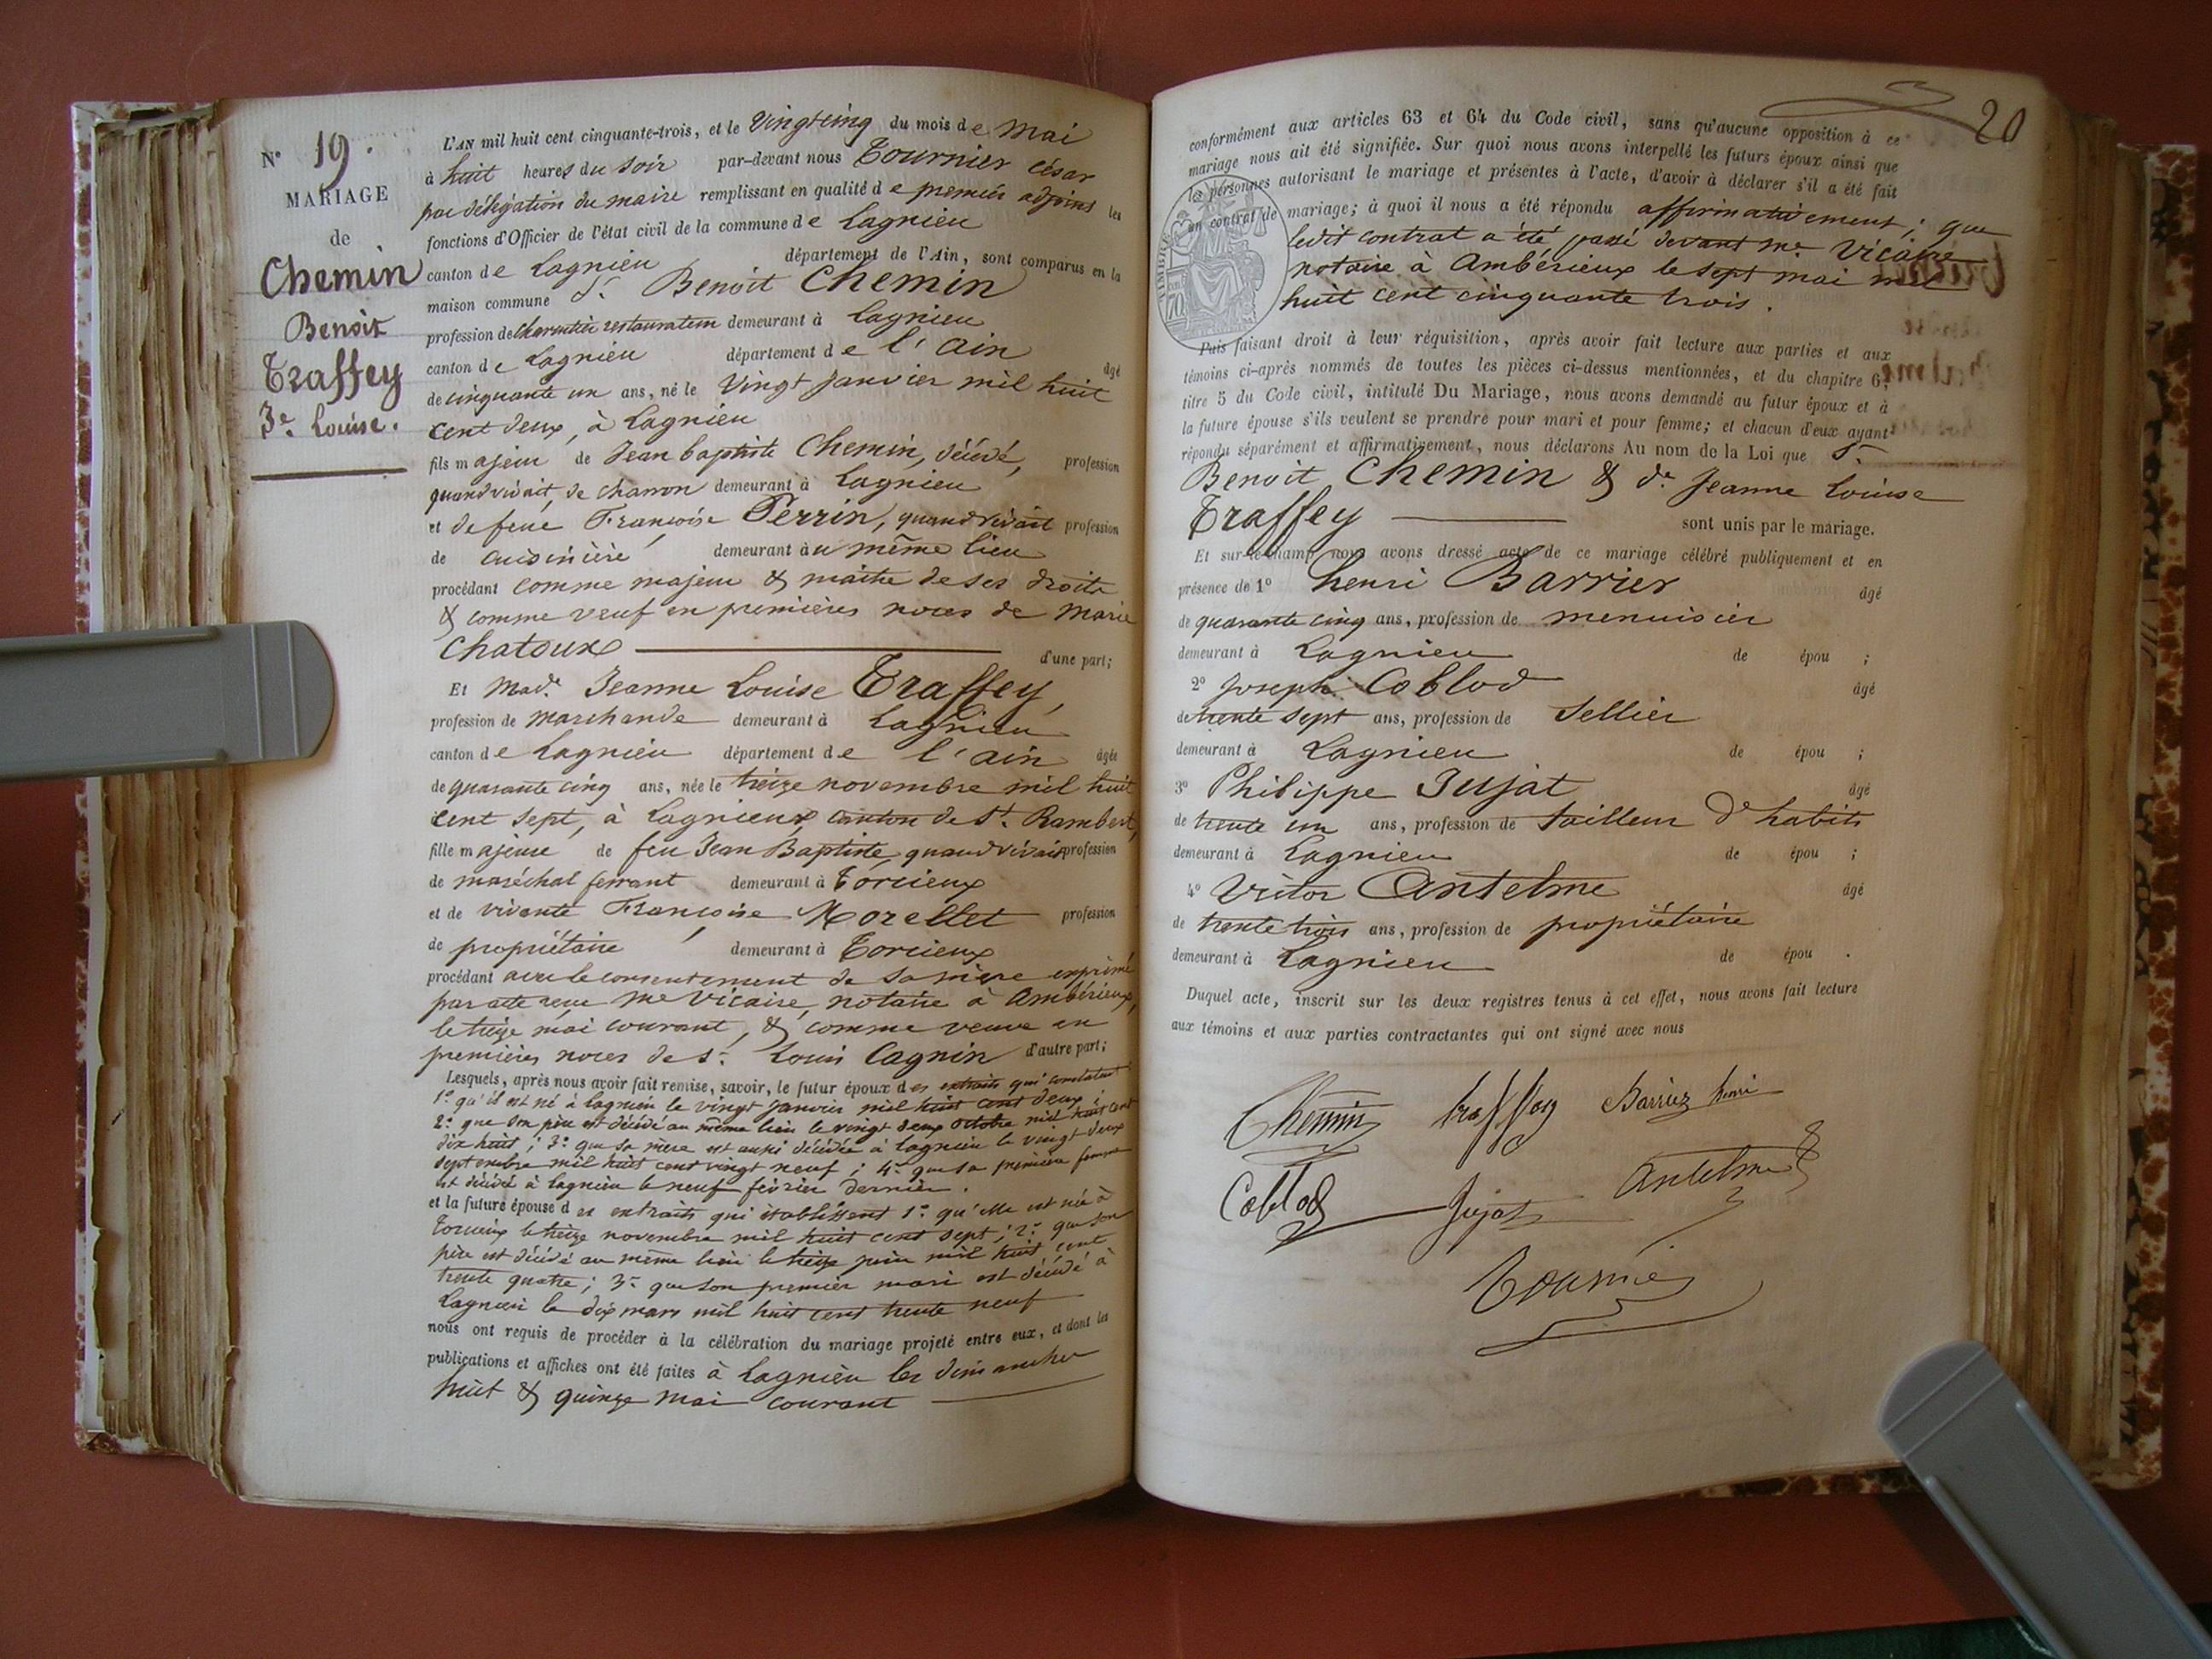 N° 19.
MARIAGE
de
Chemin
Benoit
Traffey
Je. Louise.
L'AN mil huit cent cinquante-trois, et le vingt cinq du mois de mai
à huit heures du soir par-devant nous Tournier césar
par délégation du maire remplissant en qualité de premier adjoint les
fonctions d'Officier de l'état civil de la commune de Lagnieu
canton de Lagnieu département de l'Ain, sont comparus en la
maison commune Sr. Benoit Chemin
profession de charcutier restaurateur demeurant à Lagnieu
canton de Lagnieu département de l'ain âgé
de cinquante un ans, né le vingt janvier mil huit
cent deux, à Lagnieu
fils majeur de Jean baptiste Chemin, décédé, profession
quand vivait, de charron demeurant à Lagnieu
et de feue Françoise Perrin, quand vivait profession
de cuisinière demeurant au même lieu
procédant comme majeur & maitre de ses droits
& comme veuf en premières noces de marie
Chatoux d'une part;
Et Made. Jeanne Louise Traffey,
profession de marchande demeurant à Lagnieu
canton de Lagnieu département de l'ain âgée
de quarante cinq ans, née le treize novembre mil huit
cent sept, à Lagnieux, canton de St. Rambert,
fille majeure de feu Jean Baptiste, quand vivait profession
de maréchal ferrant demeurant à Torcieux
et de vivante Françoise Morellet profession
de propriétaire demeurant à Torcieux
procédant avec le consentement de sa mère exprimé
par acte reçu me Vicaire, notaire à Ambérieux,
le treize mai courant, & comme veuve en
premières noces de Sr. Louis Cagnin d'autre part;
Lesquels, après nous avoir fait remise, savoir, le futur époux des extraits qui constatent
1° qu'il est né à Lagnieu le vingt janvier mil huit cent deux;
2° que son père est décédé au même lieu le vingt deux octobre mil huit cent
dix huit; 3° que sa mère est aussi décédée à Lagnieu le vingt deux
septembre mil huit cent vingt neuf; 4° que sa première femme
est décédée à Lagnieu le neuf février dernier.
et la future épouse des extraits qui établissent 1° qu'elle est née à
Torcieux le treize novembre mil huit cent sept; 2° que son
père est décédé au même lieu le treize juin mil huit cent
trente quatre; 3° que son premier mari est décédé à
Lagnieu le dix mars mil huit cent trente neuf
nous ont requis de procéder à la célébration du mariage projeté entre eux, et dont les
publications et affiches ont été faites à Lagnieu les dimanches
huit & quinze mai courant
20
conformément aux articles 63 et 64 du Code civil, sans qu'aucune opposition à ce
mariage nous ait été signifiée. Sur quoi nous avons interpellé les futurs époux ainsi que
les personnes autorisant le mariage et présentes à l'acte, d'avoir à déclarer s'il a été fait
un contrat de mariage; à quoi il nous a été répondu affirmativement; que
ledit contrat a été passé devant me. Vicaire
notaire à Ambérieux le sept mai mil
huit cent cinquante trois.
Puis faisant droit à leur réquisition, après avoir fait lecture aux parties et aux
témoins ci-après nommés de toutes les pièces ci-dessus mentionnées, et du chapitre 6,
titre 5 du Code civil, intitulé Du Mariage, nous avons demandé au futur époux et à
la future épouse s'ils veulent se prendre pour mari et pour femme; et chacun d'eux ayant
répondu séparément et affirmativement, nous déclarons Au nom de la Loi que Sr.
Benoit Chemin & de. Jeanne Louise
Traffey sont unis par le mariage.
Et sur-le-champ nous avons dressé acte de ce mariage célébré publiquement et en
présence de 1° henri Barrier âgé
de quarante cinq ans, profession de menuisier
demeurant à Lagnieu de épou ;
2° Joseph Coblod âgé
de trente sept ans, profession de Sellier
demeurant à Lagnieu de épou ;
3° Philippe Jujat âgé
de trente un ans, profession de tailleur d'habits
demeurant à Lagnieu de épou ;
4° Victor Antelme âgé
de trente trois ans, profession de propriétaire
demeurant à Lagnieu de épou .
Duquel acte, inscrit sur les deux registres tenus à cet effet, nous avons fait lecture
aux témoins et aux parties contractantes qui ont signé avec nous
Chemin traffey Barrier henri
Coblod Jujat Antelme
Tournier